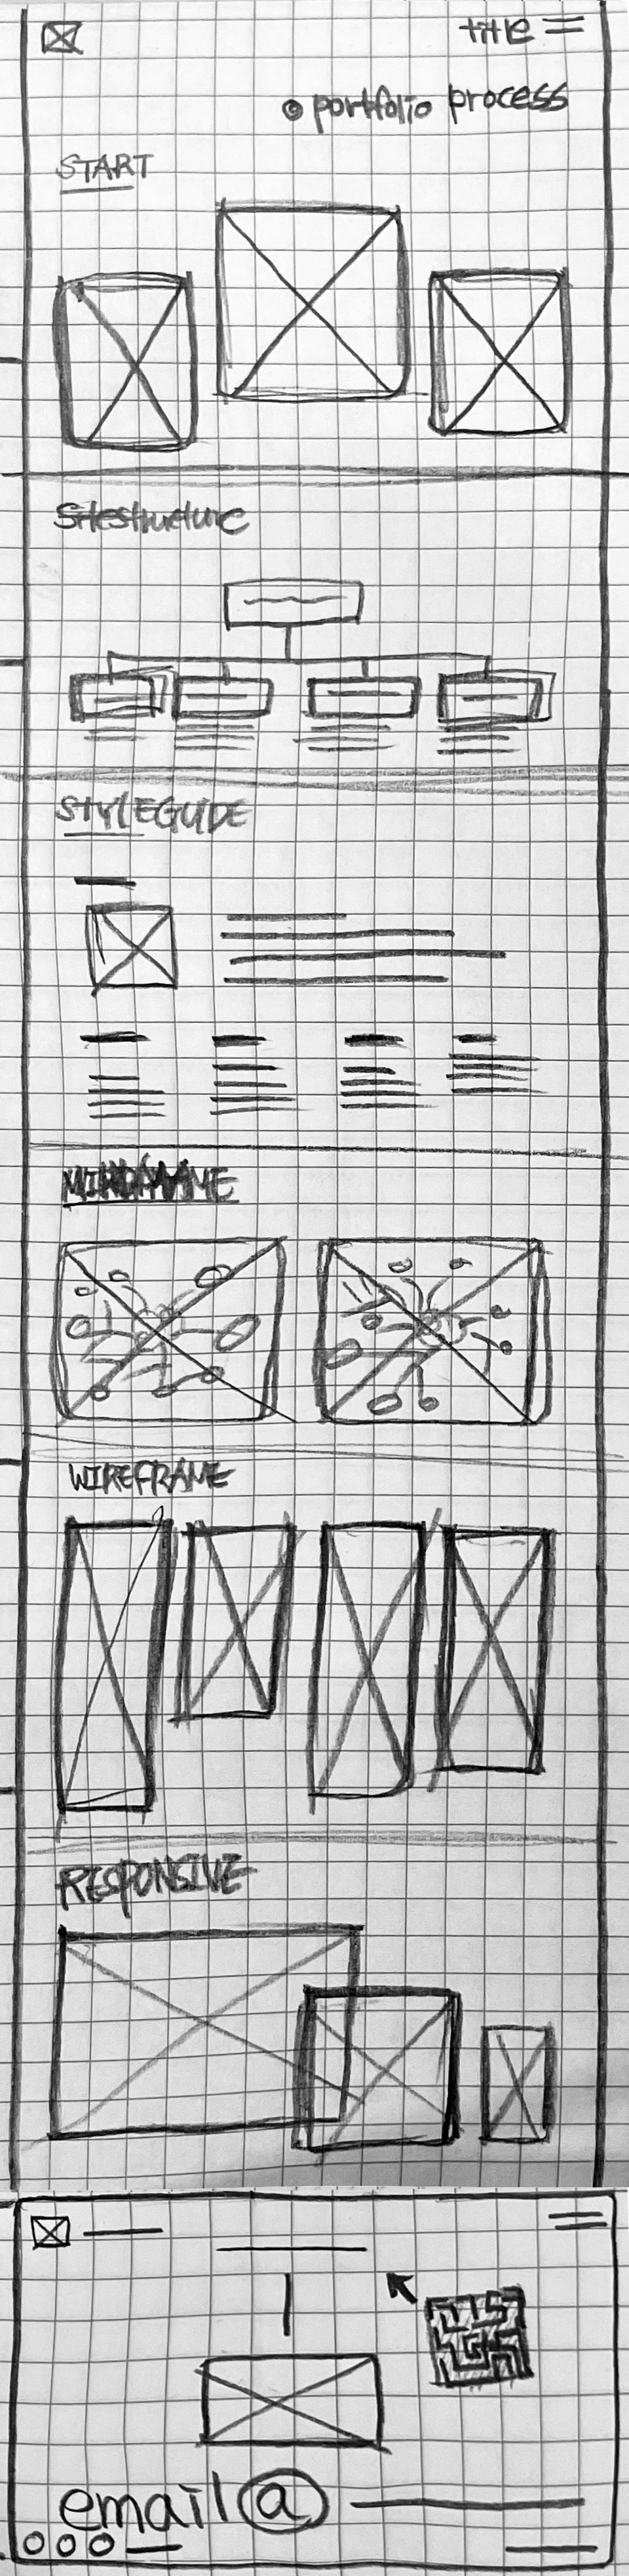 title
portfolio process
START
Sitestructure
STYLEGUIDE
WIREFRAME
RESPONSIVE
email@